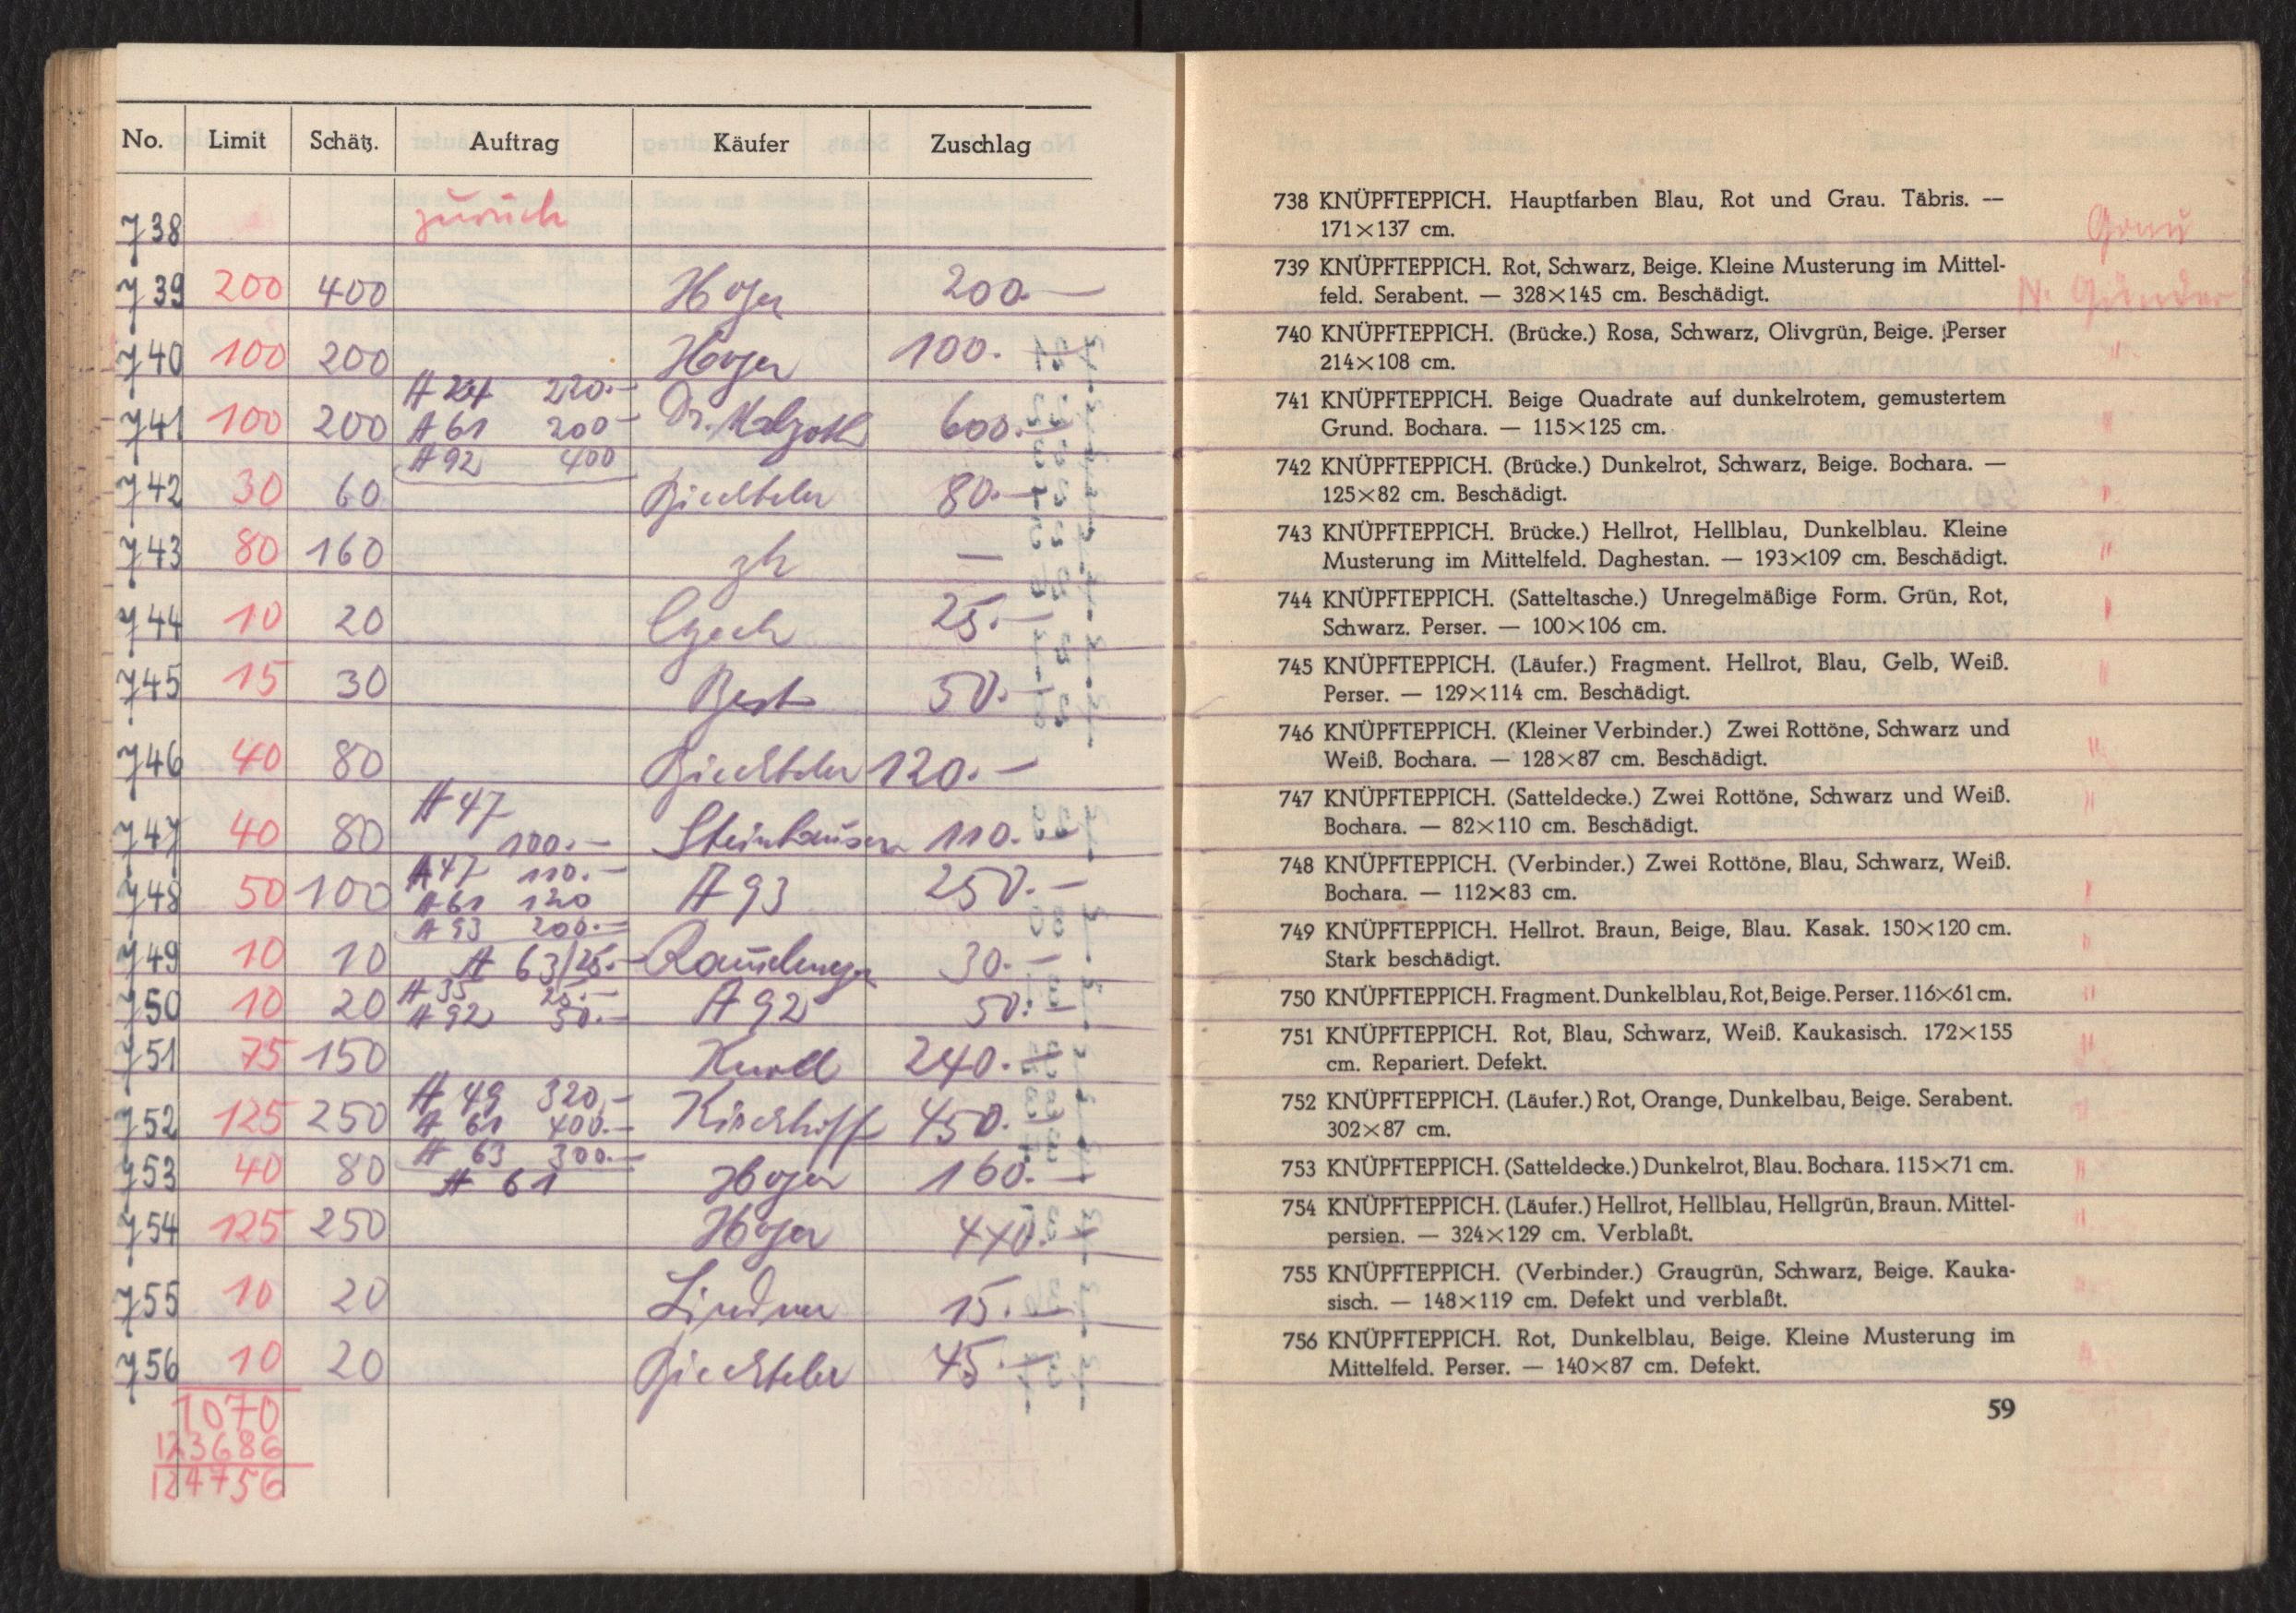 No. Limit Schätz. Auftrag Käufer Zuschlag
738 zurück
739 200 400 Hoyer 200.—
740 100 200 Hoyer 100.—
A 24 220.—
741 100 200 A 61 200.— Dr. 600.—
A 92 400
742 30 60 80.—
743 80 160 zh —
744 10 20 Czech 25.—
745 15 30 Best 50.—
746 40 80 120.—
A 47
747 40 80 100.— Steinhauser 110.—
A 47 110.—
748 50 100 A 61 120 A 93 250.—
A 93 200.—
749 10 10 A 63/25.— 30.—
A 35 25.—
750 10 20 A 92 50.— A 92 50.—
751 75 150 240.—
A 49 320.—
752 125 250 A 61 400.— Kirchhoff 450.—
A 63 300.—
753 40 80 A 61 Hoyer 160.—
754 125 250 Hoyer 440.—
755 10 20 Lindner 15.—
756 10 20 45.—
1070
123686
124756
738 KNÜPFTEPPICH. Hauptfarben Blau, Rot und Grau. Täbris. —
171×137 cm.
739 KNÜPFTEPPICH. Rot, Schwarz, Beige. Kleine Musterung im Mittel-
feld. Serabent. — 328×145 cm. Beschädigt. N. Günder
740 KNÜPFTEPPICH. (Brücke.) Rosa, Schwarz, Olivgrün, Beige. Perser
214×108 cm. "
741 KNÜPFTEPPICH. Beige Quadrate auf dunkelrotem, gemustertem
Grund. Bochara. — 115×125 cm. "
742 KNÜPFTEPPICH. (Brücke.) Dunkelrot, Schwarz, Beige. Bochara. —
125×82 cm. Beschädigt. "
743 KNÜPFTEPPICH. Brücke.) Hellrot, Hellblau, Dunkelblau. Kleine
Musterung im Mittelfeld. Daghestan. — 193×109 cm. Beschädigt. "
744 KNÜPFTEPPICH. (Satteltasche.) Unregelmäßige Form. Grün, Rot,
Schwarz. Perser. — 100×106 cm. "
745 KNÜPFTEPPICH. (Läufer.) Fragment. Hellrot, Blau, Gelb, Weiß.
Perser. — 129×114 cm. Beschädigt. "
746 KNÜPFTEPPICH. (Kleiner Verbinder.) Zwei Rottöne, Schwarz und
Weiß. Bochara. — 128×87 cm. Beschädigt. "
747 KNÜPFTEPPICH. (Satteldecke.) Zwei Rottöne, Schwarz und Weiß.
Bochara. — 82×110 cm. Beschädigt. "
748 KNÜPFTEPPICH. (Verbinder.) Zwei Rottöne, Blau, Schwarz, Weiß.
Bochara. — 112×83 cm. "
749 KNÜPFTEPPICH. Hellrot. Braun, Beige, Blau. Kasak. 150×120 cm.
Stark beschädigt. "
750 KNÜPFTEPPICH. Fragment. Dunkelblau, Rot, Beige. Perser. 116×61 cm. "
751 KNÜPFTEPPICH. Rot, Blau, Schwarz, Weiß. Kaukasisch. 172×155
cm. Repariert. Defekt. "
752 KNÜPFTEPPICH. (Läufer.) Rot, Orange, Dunkelbau, Beige. Serabent.
302×87 cm. "
753 KNÜPFTEPPICH. (Satteldecke.) Dunkelrot, Blau. Bochara. 115×71 cm. "
754 KNÜPFTEPPICH. (Läufer.) Hellrot, Hellblau, Hellgrün, Braun. Mittel-
persien. — 324×129 cm. Verblaßt. "
755 KNÜPFTEPPICH. (Verbinder.) Graugrün, Schwarz, Beige. Kauka-
sisch. — 148×119 cm. Defekt und verblaßt. "
756 KNÜPFTEPPICH. Rot, Dunkelblau, Beige. Kleine Musterung im
Mittelfeld. Perser. — 140×87 cm. Defekt. "
59